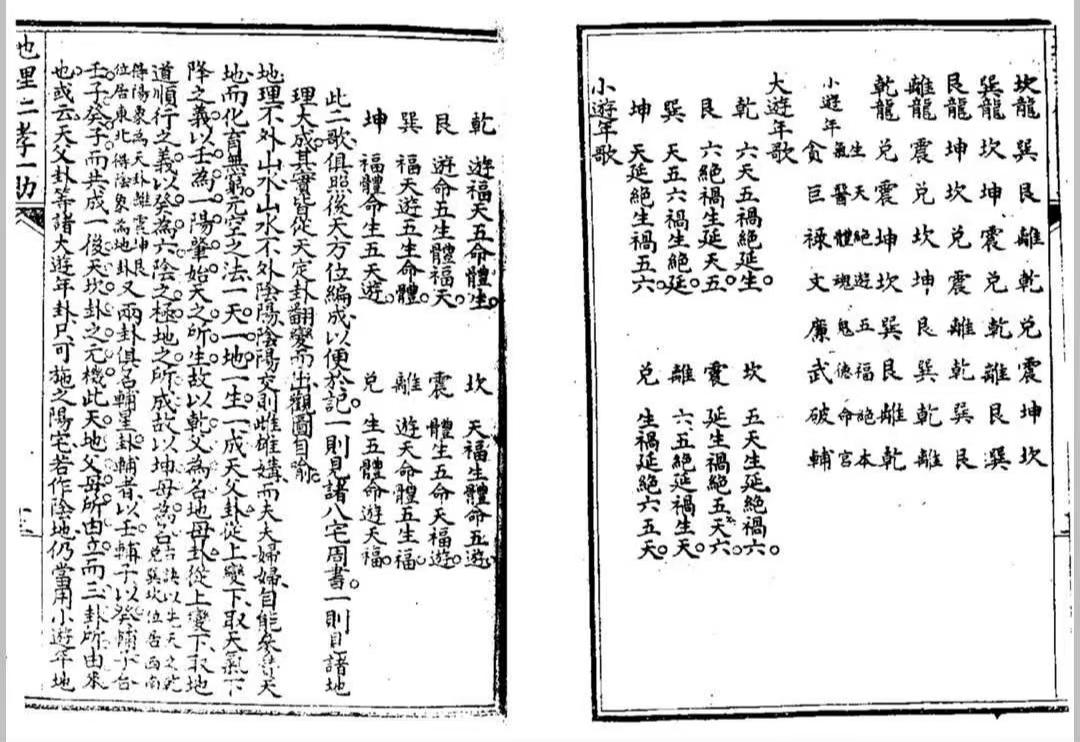 坎龍 巽 艮 離 乾 兌 震 坤 坎
巽龍 坎 坤 震 兌 乾 離 艮 巽
艮龍 坤 坎 兌 震 離 乾 巽 艮
離龍 震 兌 坎 坤 艮 巽 乾 離
乾龍 兌 震 坤 坎 巽 艮 離 乾
小遊年 生氣 天醫 絕體 遊魂 五鬼 福德 絕命 本宮
貪 巨 祿 文 廉 武 破 輔
大遊年歌
乾 六天五禍絕延生。 坎 五天生延絕禍六。
艮 六絕禍生延天五。 震 延生禍絕五天六。
巽 天五六禍生絕延。 離 六五絕延禍生天。
坤 天延絕生禍五六 兌 生禍延絕六五天。
小遊年歌
乾 遊福天五命體生。 坎 天福生體命五遊。
艮 遊命五生體福天。 震 體生五命天福遊。
巽 福天遊五生命體 離 遊天命體五生福
坤 福體命生五天遊。 兌 生五體命遊天福。
此二歌俱照後天方位編成以便於記一則見諸八宅周書。一則見諸地
理大成其實皆從天定卦翻變而出觀圖自喻。
地理不外山水山水不外陰陽陰陽交則雌雄媾而夫夫婦婦自能參贊天
地而化育無窮元空之法一天一地一生一成天父卦從上變下取天氣下
降之義以壬為一陽肇始天之所生故以乾父為名地母卦從上變下取地
道順行之義以癸為六陰之極地之所成故以坤母為名古訣以先天之乾兌巽坎位居西南
得陽東為天卦離震坤艮位居東北得陰象為地卦又兩卦俱名輔星卦輔者以壬輔子以癸輔子合
壬子癸子而共成一後天坎卦之元機此天地父母所由立而三卦所由來
也或云天父卦等諸大遊年卦只可施之陽宅若作陰地仍當用小遊年地
地理二孝一助